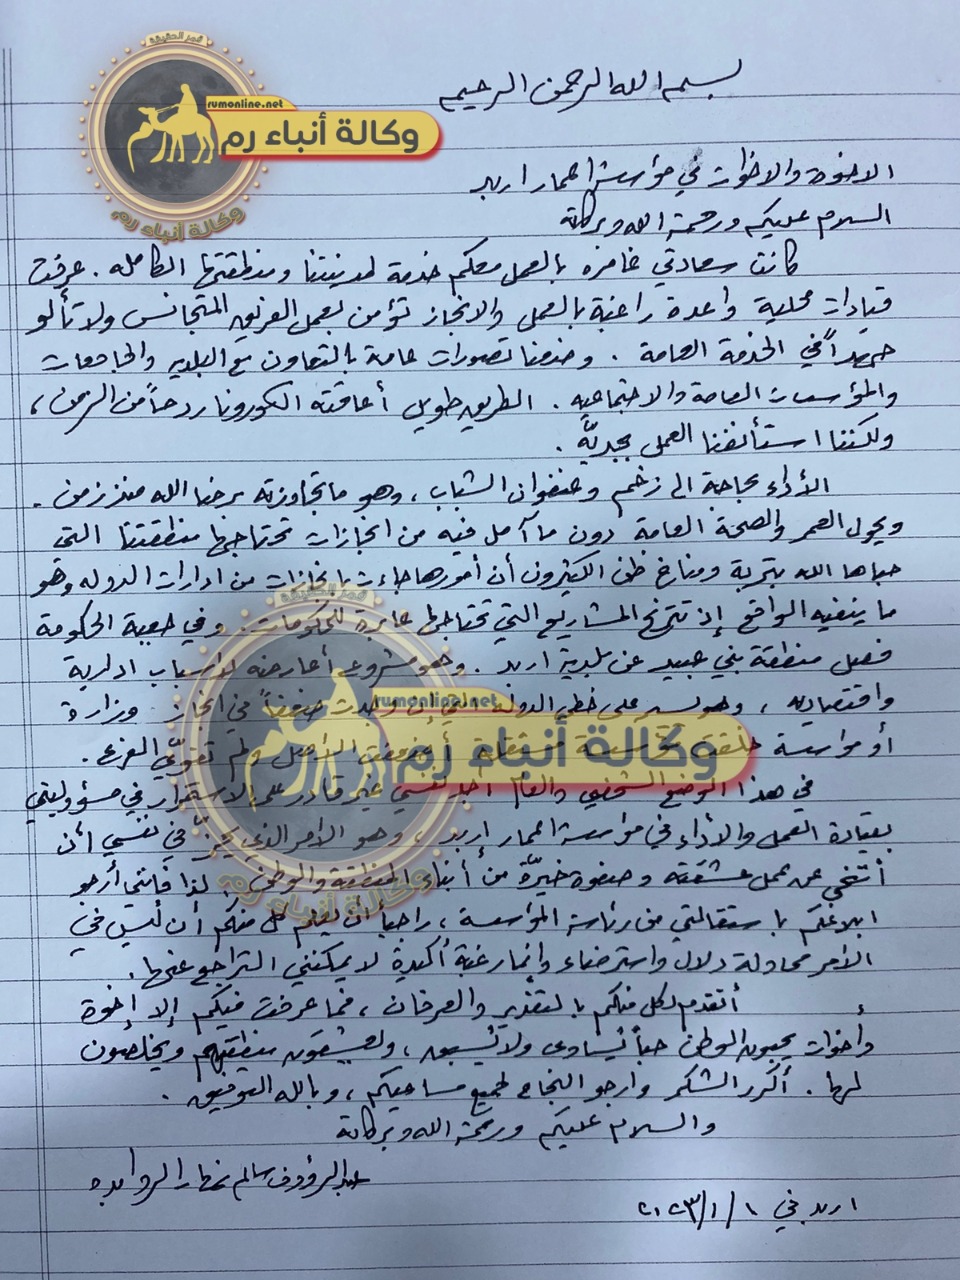 قمر الحقيقة
rumonline.net
وكالة أنباء رم
وكالة أنباء رم
بسم الله الرحمن الرحيم
الاخوة والاخوات في مؤسسة اعمار اربد
السلام عليكم ورحمة الله وبركاته
كانت سعادتي غامرة بالعمل معكم خدمة لمدينتنا ومنطقتها الكامله . عرفت
قيادات محلية واعدة راغبة بالعمل والانجاز تؤمن بعمل الفريق المتجانس ولا تألو
جهداً في الخدمة العامة . وضعنا تصورات عامة بالتعاون مع البلديه والجامعات
والمؤسسات العامة والاجتماعيه . الطريق طويل أعاقته الكورونا ردحاً من الزمن ،
ولكننا استأنفنا العمل بجديّة .
الأداء بحاجة الى زخم وعنفوان الشباب ، وهو ما تجاوزته برضا الله منذ زمن .
ويحول العمر والصحة العامة دون ما آمل فيه من انجازات تحتاجها منطقتنا التي
حباها الله بتربة ومناخ ظن الكثيرون أن أمورها جاءت بانجازات من ادارات الدوله وهو
ما ينفيه الواقع إذ تترنح المشاريع التي تحتاجها عابرة للحكومات . وفي جعبة الحكومة
فصل منطقة بني عبيد عن بلدية اربد . وهو مشروع أعارضه لاسباب ادارية
واقتصاديه ، وهو يسير على خطى الدولة التي إن وجدت ضعفاً في انجاز وزارة
أو مؤسسة خلقت مؤسسة مستقلة أضعفت الأصل ولم تقوّي الفرع .
في هذا الوضع الشخصي والعام أجد نفسي غير قادر على الاستمرار في مسؤوليتي
بقيادة العمل والأداء في مؤسسة اعمار إربد ، وهو الأمر الذي يحزّ في نفسي أن
أتنحى عن عمل عشقته وصفوة خيّرة من أبناء المنطقة والوطن . لذا فانني أرجو
ابلاغكم باستقالتي من رئاسة المؤسسة ، راجياً أن يعلم كل منكم أن ليس في
الأمر محاولة دلال واسترضاء وإنما رغبة أكيدة لا يمكنني التراجع عنها .
أتقدم لكل منكم بالتقدير والعرفان ، فما عرفت فيكم إلا إخوة
وأخوات يحبون الوطن حباً يُساوى ولا يُسبق ، ويعشقون منطقتهم ويخلصون
لها . أكرر الشكر وارجو النجاح لجميع مساعيكم ، وبالله التوفيق .
والسلام عليكم ورحمة الله وبركاته
عبدالرؤوف سالم نهار الروابده
اربد في ١/١/٢٠٢٣
قمر الحقيقة
rumonline.net
وكالة أنباء رم
وكالة أنباء رم